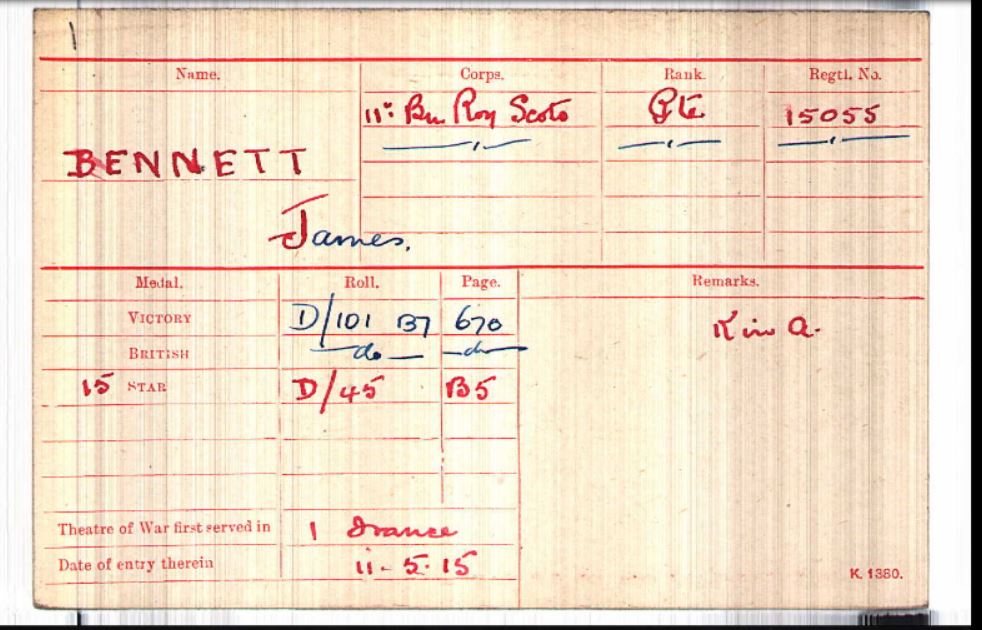 Name. Corps. Rank. Regtl. No.
11: Bn Roy Scots Pte 15055
BENNETT
James.
Medal. Roll. Page. Remarks.
VICTORY D/101 B7 670
K in a.
BRITISH do do
15 STAR D/45 B5
Theatre of War first served in 1 France
Date of entry therein 11-5-15
K. 1380.